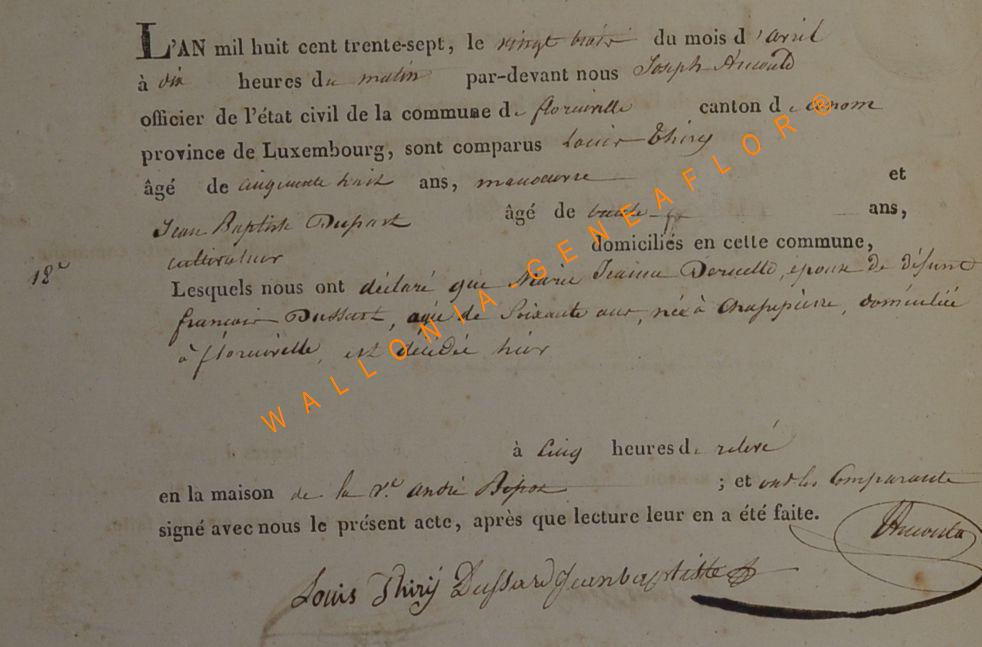 L'AN mil huit cent trente-sept, le vingt trois du mois d'avril
à dix heures du matin par-devant nous Joseph Arnould
officier de l'état civil de la commune de florenville canton d idem
province de Luxembourg, sont comparus Louis Thiry
âgé de cinquante huit ans, manoeuvre et
Jean Baptiste Dussart âgé de trente ans,
cultivateur domiciliés en cette commune,
18e Lesquels nous ont déclaré que Marie Jeanne épouse de défunt
françois Dussart, agée de Soixante ans, née à Chassepierre, domiciliée
à florenville, est décédée hier
à Cinq heures de relevé
en la maison de la Ve andré ; et ont les Comparants
signé avec nous le présent acte, après que lecture leur en a été faite.
Arnould
Louis Thirÿ Dussard Jeanbaptiste
WALLONIA GENEAFLOR®